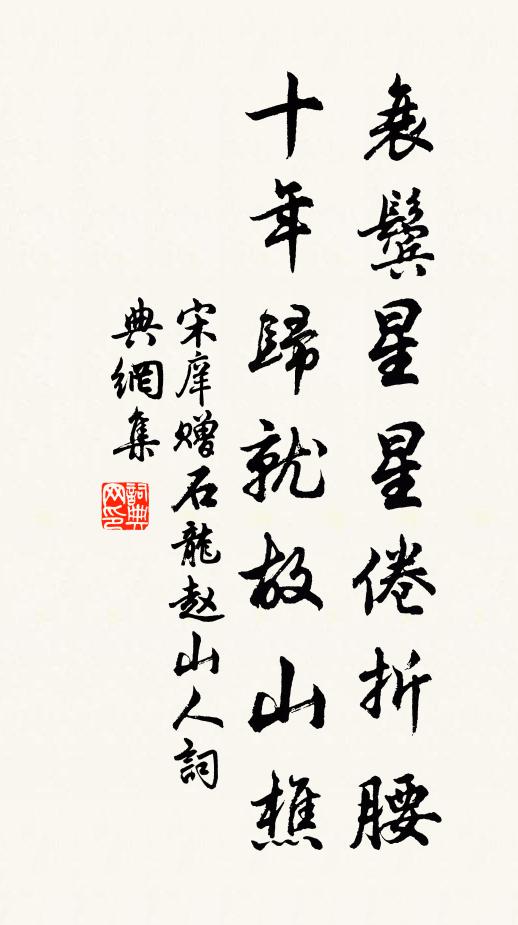 衰鬓星星倦折腰
十年歸就故山樵
宋庠赠石龍赵山人詞
典網集
詞典网印